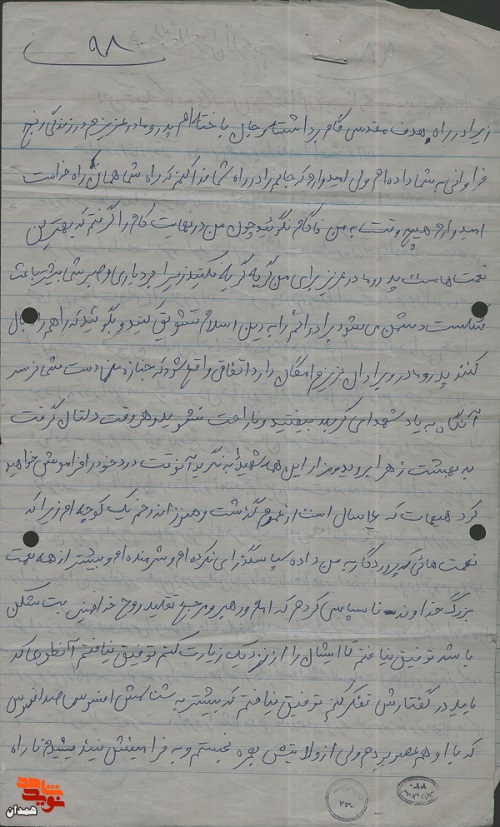 ۹۸
زیرا در راه هدف مقدسی گام برداشته و جان باخته‌ام پدر و مادر عزیزم در زندگی رنج
فراوانی به شما داده‌ام ولی امیدوارم که جانم را در راه شما فدا کنم که راه شما همان راه خداست
امیدوارم هیچ وقت به من ناکام نگوئید چون من در نهایت کام را گرفتم که بهترین
نعمت‌هاست پدر و مادر عزیز برای من گریه نکنید زیرا بردباری و صبر شما بیشتر باعث
شکست دشمن می‌شود برادرانم را به دین اسلام تشویق کنید و بگوئید که راهم را دنبال
کنند پدر و مادر و برادران عزیزم امکان دارد اتفاقی واقع شود که جنازه من دست شما نرسد
آنگاه به یاد شهدای کربلا بیفتید و ناراحت نشوید و هر وقت دلتان گرفت
به بهشت زهرا بروید و مزار این همه شهید را بنگرید آنوقت درد خود را فراموش خواهید
کرد هیهات که سال است از عمرم گذشت و هنوز اندر خم یک کوچه‌ام زیرا که
نعمت‌هائی که پروردگار به من داده سپاسگزاری نکرده‌ام و شرمنده‌ام و بیشتر از همه نعمت
بزرگ خداوند ناسپاسی کردم که امام و رهبر و مرجع تقلید روح خدا خمینی بت شکن
باشد توفیق نیافتم تا ایشان را از نزدیک زیارت کنم توفیق نیافتم آنطوری که
باید در گفتارش تفکر کنم توفیق نیافتم که بیشتر به شناختش افسوس صد افسوس
که با او همعصر بودم ولی از ولایتش بهره نجستم و به فرامینش نیندیشیدم تا راه
نوید شاهد
همدان